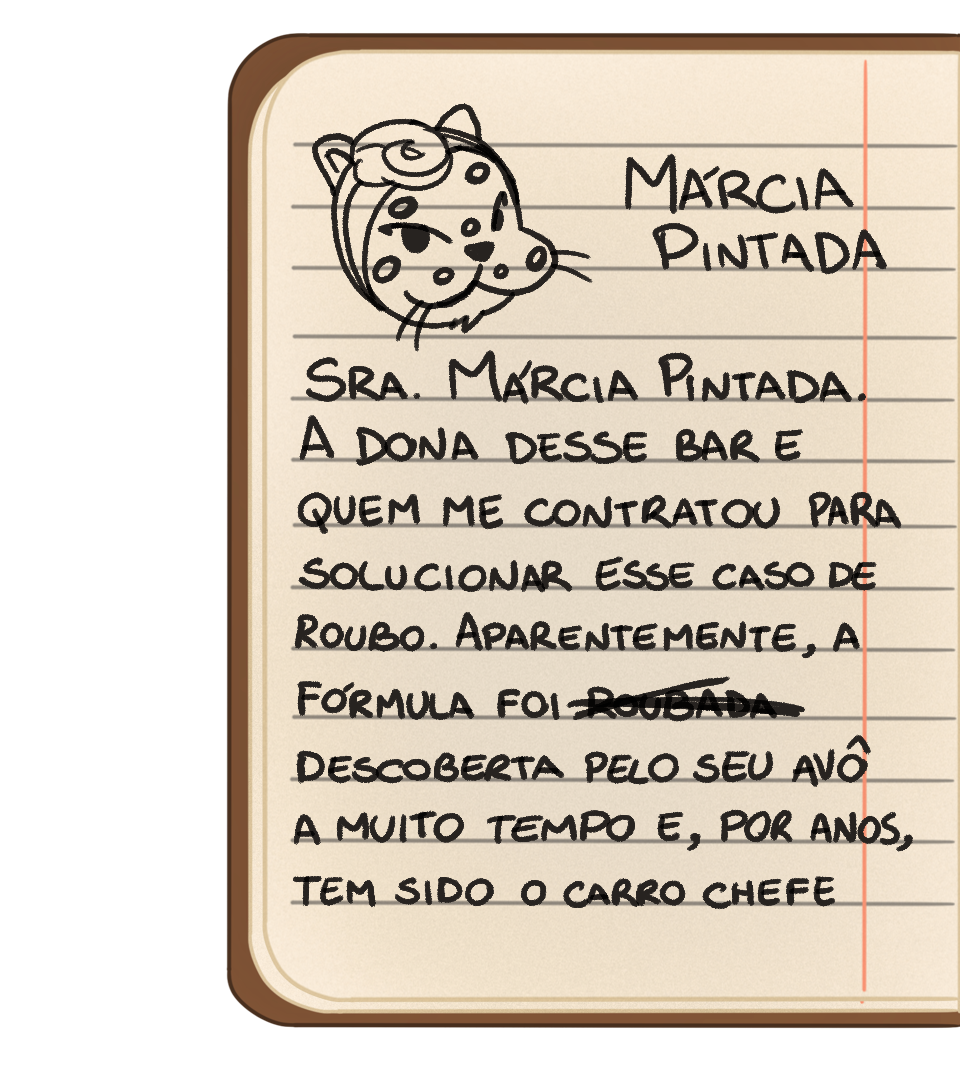 MÁRCIA
PINTADA
SRA. MÁRCIA PINTADA.
A DONA DESSE BAR E
QUEM ME CONTRATOU PARA
SOLUCIONAR ESSE CASO DE
ROUBO. APARENTEMENTE, A
FÓRMULA FOI ROUBADA
DESCOBERTA PELO SEU AVÔ
A MUITO TEMPO E, POR ANOS,
TEM SIDO O CARRO CHEFE